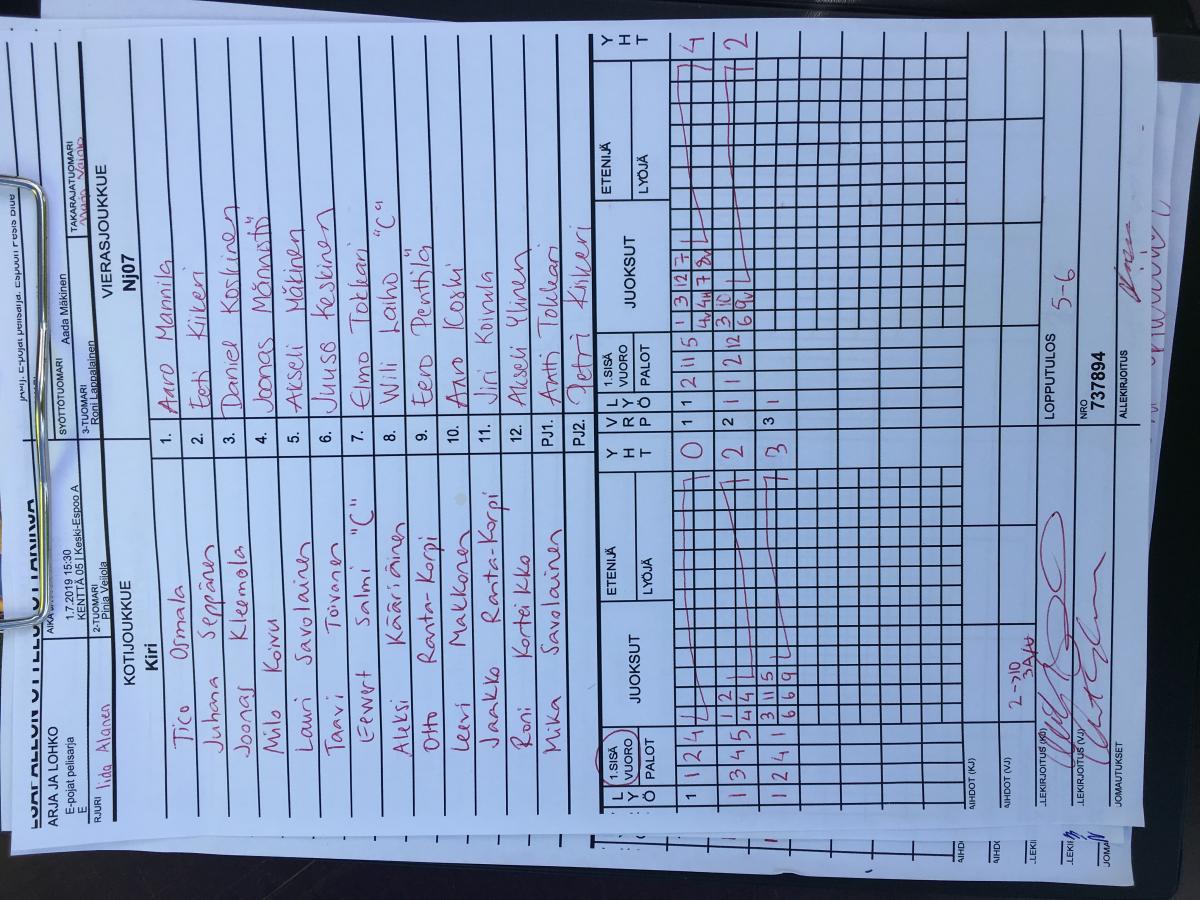 ARJA JA LOHKO
E-pojat pelisarja
E
1.7.2019 15:30
KENTTÄ 05 | Keski-Espoo A
SYÖTTÖTUOMARI
Aada Mäkinen
TAKARAJATUOMARI
RJURI Iida Alanen
2-TUOMARI
Pinja Veijola
3-TUOMARI
Roni Lappalainen
KOTIJOUKKUE
Kiri
VIERASJOUKKUE
Nj07
Tico Osmala 1. Aaro Mannila
Juhana Seppänen 2. Eeti Kiikeri
Joonas Kleemola 3. Daniel Koskinen
Milo Koivu 4. Joonas Männistö
Lauri Savolainen 5. Akseli Mäkinen
Taavi Toivanen 6. Juuso Keskinen
Eevert Salmi "C" 7. Elmo Tokkari
Aleksi Kääriäinen 8. Wili Laiho "C"
Otto Ranta-Korpi 9. Eero Penttilä
Leevi Makkonen 10. Aaro Koski
Jaakko Ranta-Korpi 11. Jiri Koivula
Roni Korteikko 12. Akseli Ylinen
Mika Savolainen PJ1. Antti Tokkari
PJ2. Petri Kiikeri
L Y Ö 1.SISÄ VUORO PALOT JUOKSUT ETENIJÄ LYÖJÄ Y H T V R P L Y Ö 1.SISÄ VUORO PALOT JUOKSUT ETENIJÄ LYÖJÄ Y H T
1 1 2 4 0 1 1 2 11 5 1 3 12 7 1 4
1 3 4 5 1 2 2 2 1 1 2 12 3 10 2
4 4
1 2 4 1 3 11 5 3 3 1
6 6 9
AIHDOT (KJ)
AIHDOT (VJ)
2->10
LLEKIRJOITUS (KJ)
LOPPUTULOS 5-6
LLEKIRJOITUS (VJ)
NRO
737894
JOMAUTUKSET
ALLEKIRJOITUS